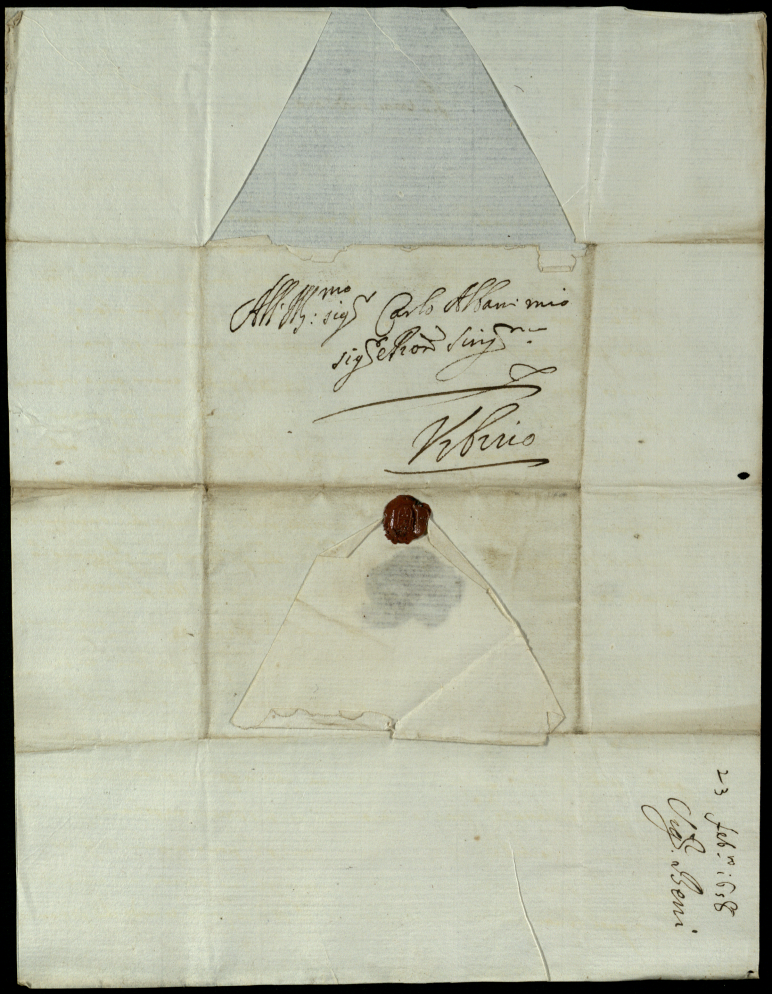 All' Ill:mo sigr Carlo Albani mio
sigr e Pron Singmo
Vrbino
23 febro 1658
Sigr. Beni